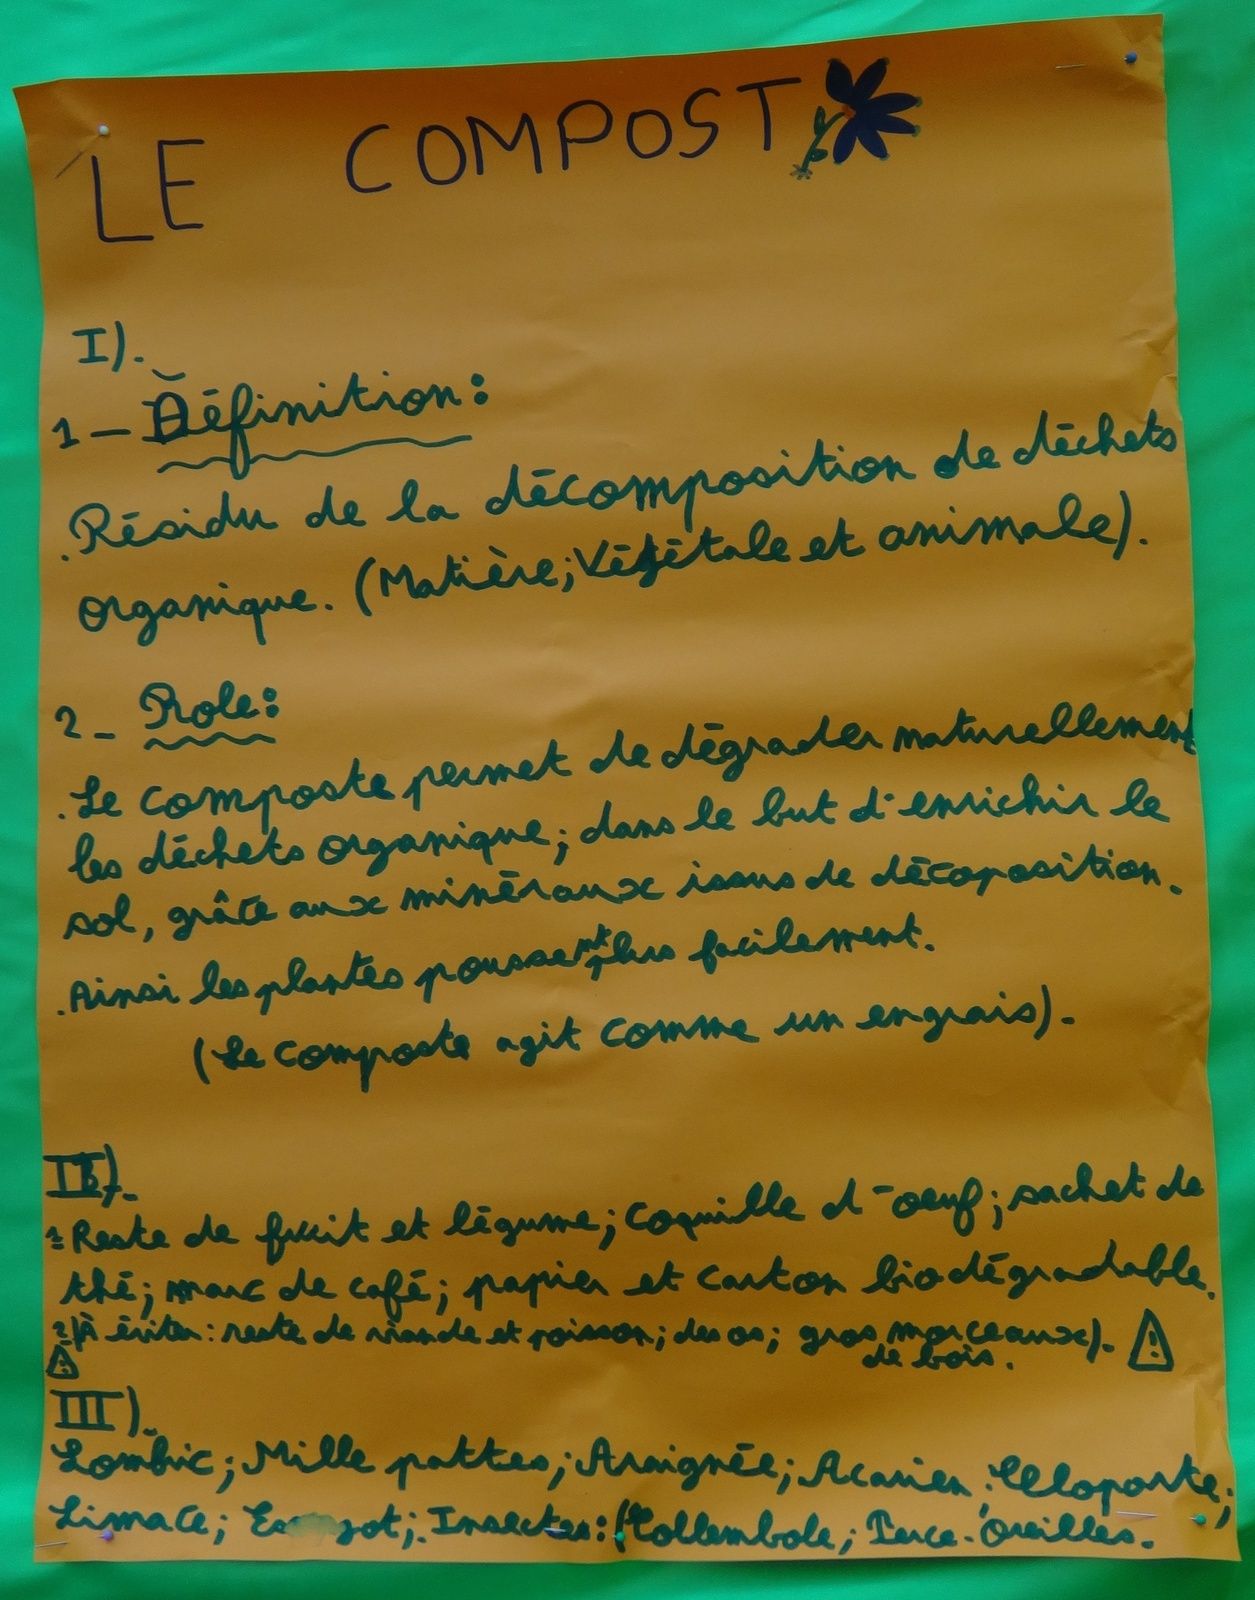 LE COMPOST
I).
1 - Définition:
.Résidu de la décomposition de déchets
organique. (Matière; Végétale et animale).
2 - Role:
.Le composte permet de dégrader naturellement
les déchets organique; dans le but d'enrichir le
sol, grâce aux minéraux issus de décoposition.
.Ainsi les plantes poussent plus facilement.
(Le composte agit comme un engrais).
II).
1-Reste de fruit et légume; coquille d'oeuf; sachet de
thé; marc de café; papier et carton biodégradable.
2-(À éviter: reste de viande et poisson; des os; gros morceaux).
de bois.
III).
Lombric; Mille pattes; Araignée; Acarien; Cloporte;
Limace; Insectes: (Collembole; Perce-Oreilles.